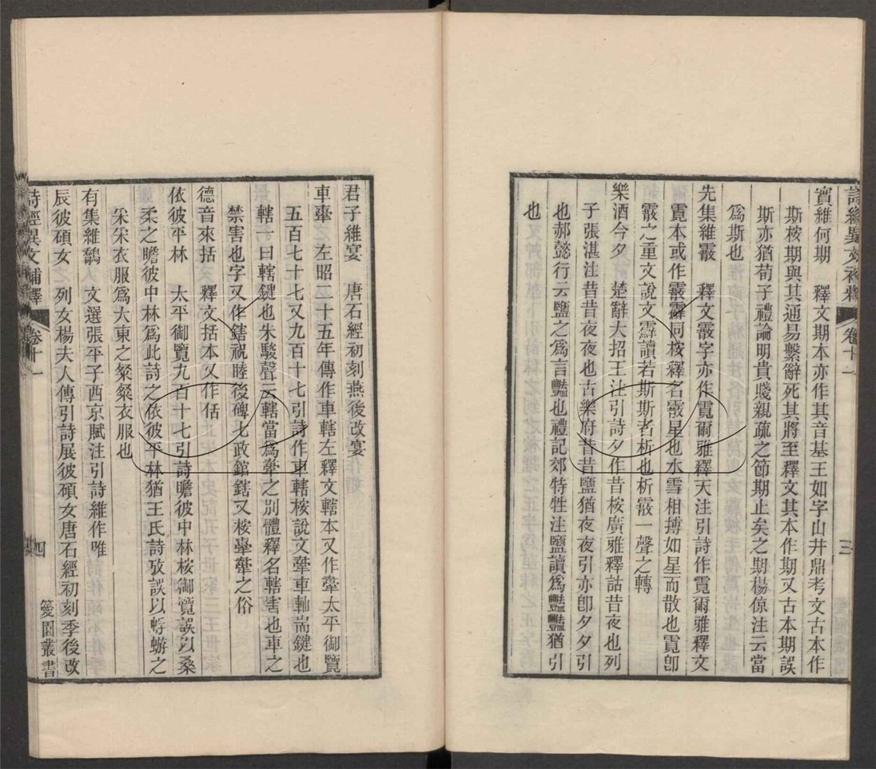 詩經異文補釋 卷十一 三
實維何期 釋文期本亦作其音基王如字山井鼎考文古本作
斯桉期與其通易繫辭死其將至釋文其本作期又古本期誤
斯亦猶荀子禮論明貴賤親疏之節期止矣之期楊倞注云當
爲斯也
先集維霰 釋文霰字亦作霓爾雅釋天注引詩作霓爾雅釋文
霓本或作霰霹同桉釋名霰星也水雪相摶如星而散也霓卽
霰之重文說文霹讀若斯斯者析也析霰一聲之轉
樂酒今夕 楚辭大招王注引詩夕作昔桉廣雅釋詁昔夜也列
子張湛注昔昔夜夜也古樂府昔昔鹽猶夜夜引亦卽夕夕引
也郝懿行云鹽之爲言豔也禮記郊特牲注鹽讀爲豔豔猶引
也
君子維宴 唐石經初刻燕後改宴
車舝 左昭二十五年傳作車轄左釋文轄本又作舝太平御覽
五百七十七又九百十七引詩作車轄桉說文舝車軸耑鍵也
轄一曰轄鍵也朱駿聲云轄當爲舝之別體釋名轄害也車之
禁害也字又作鎋祝睦後碑七政錧鎋又桉舝舝之俗
德音來括 釋文括本又作佸
依彼平林 太平御覽九百十七引詩瞻彼中林桉御覽誤以桑
柔之瞻彼中林爲此詩之依彼平林猶王氏詩攷誤以蜉蝣之
采采衣服爲大東之粲粲衣服也
有集維鷮 文選張平子西京賦注引詩維作唯
辰彼碩女 列女楊夫人傳引詩展彼碩女唐石經初刻季後改
詩經異文補釋 卷十一 四 䈣園叢書